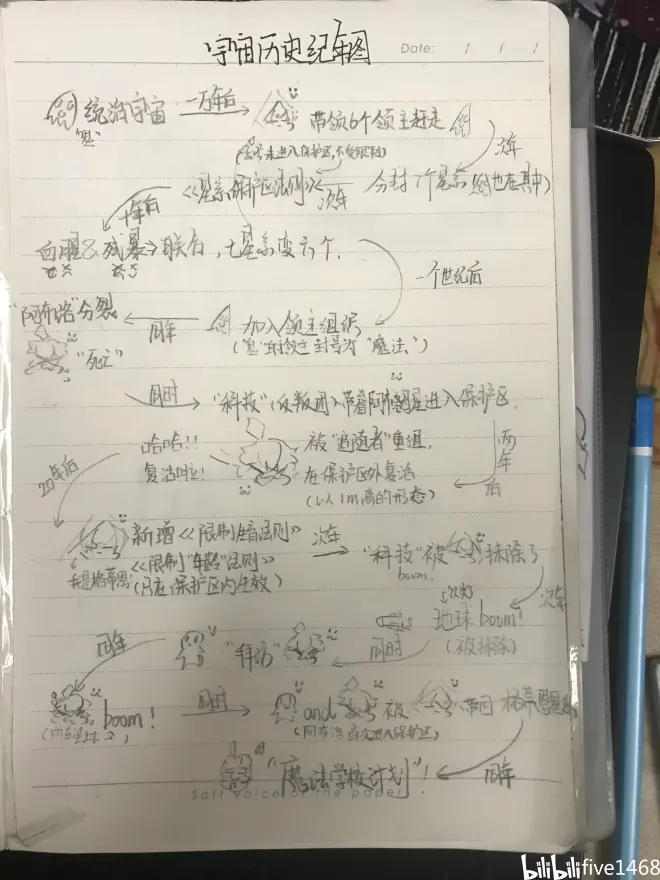 宇宙历史纪年图
Date: / / /
统治宇宙 一万年后 带领6个领主赶走
次年
未进入保护区,不受限制
《星系保护区法则》 次年 分封7个星系 也在其中)
十年后
血腥&残暴 联合,七星系变六个.
一个世纪后
"阿布洛"分裂 同年 加入领主组织
"死亡" 封号为"魔法")
同时 "科技"(反叛 )带着阿布 星进入保护区
两年后
哈哈!! 被"追随者"重组,
复活啦! 在保护区外复活
(以1m高的形态)
20年后
新增《限制 法则》 次年 "科技"被 抹除了
《限制"年龄"法则》 boom!
(只在保护区内生效)
次年
地球boom!
(被抹除)
同年 "拜访" 同时
boom! 同时 and 被 带回
(阿布洛 进入保护区)
"魔法学校计划"! 同年
Soft voice of the paper
bilibili five1468